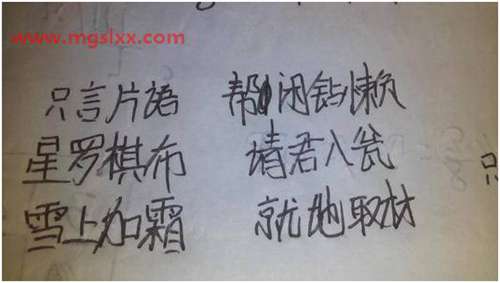 www.mgslxx.com
只言片語 帮闲钻懒
星罗棋布 请君入瓮
雪上加霜 就地取材
只